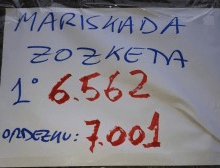 MARISKADA
ZOZKETA
1º 6.562
ORDEZKU: 7.001